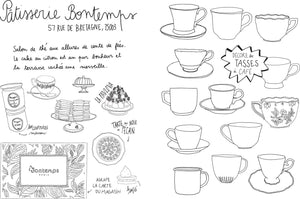 Pâtisserie Bontemps
57 RUE DE BRETAGNE, 75003
Salon de thé aux allures de conte de fée.
Le cake au citron est un pur bonheur et
la terrasse cachée une merveille.
DÉCORE LES
TASSES
À CAFÉ
TARTE AUX NOIX
DE PÉCAN
Bontemps
PARIS
LA CARTE
DU MAGASIN